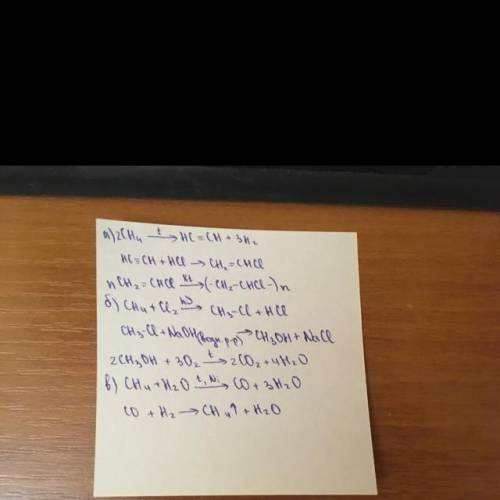 а) 2CH₄ —t→ HC≡CH + 3H₂
HC≡CH + HCl → CH₂=CHCl
nCH₂=CHCl —kt→ (-CH₂-CHCl-)n
б) CH₄ + Cl₂ —hν→ CH₃-Cl + HCl
CH₃-Cl + NaOH (водн. р-р) → CH₃OH + NaCl
2CH₃OH + 3O₂ —t→ 2CO₂ + 4H₂O
в) CH₄ + H₂O —t, Ni→ CO + 3H₂O
CO + H₂ → CH₄↑ + H₂O